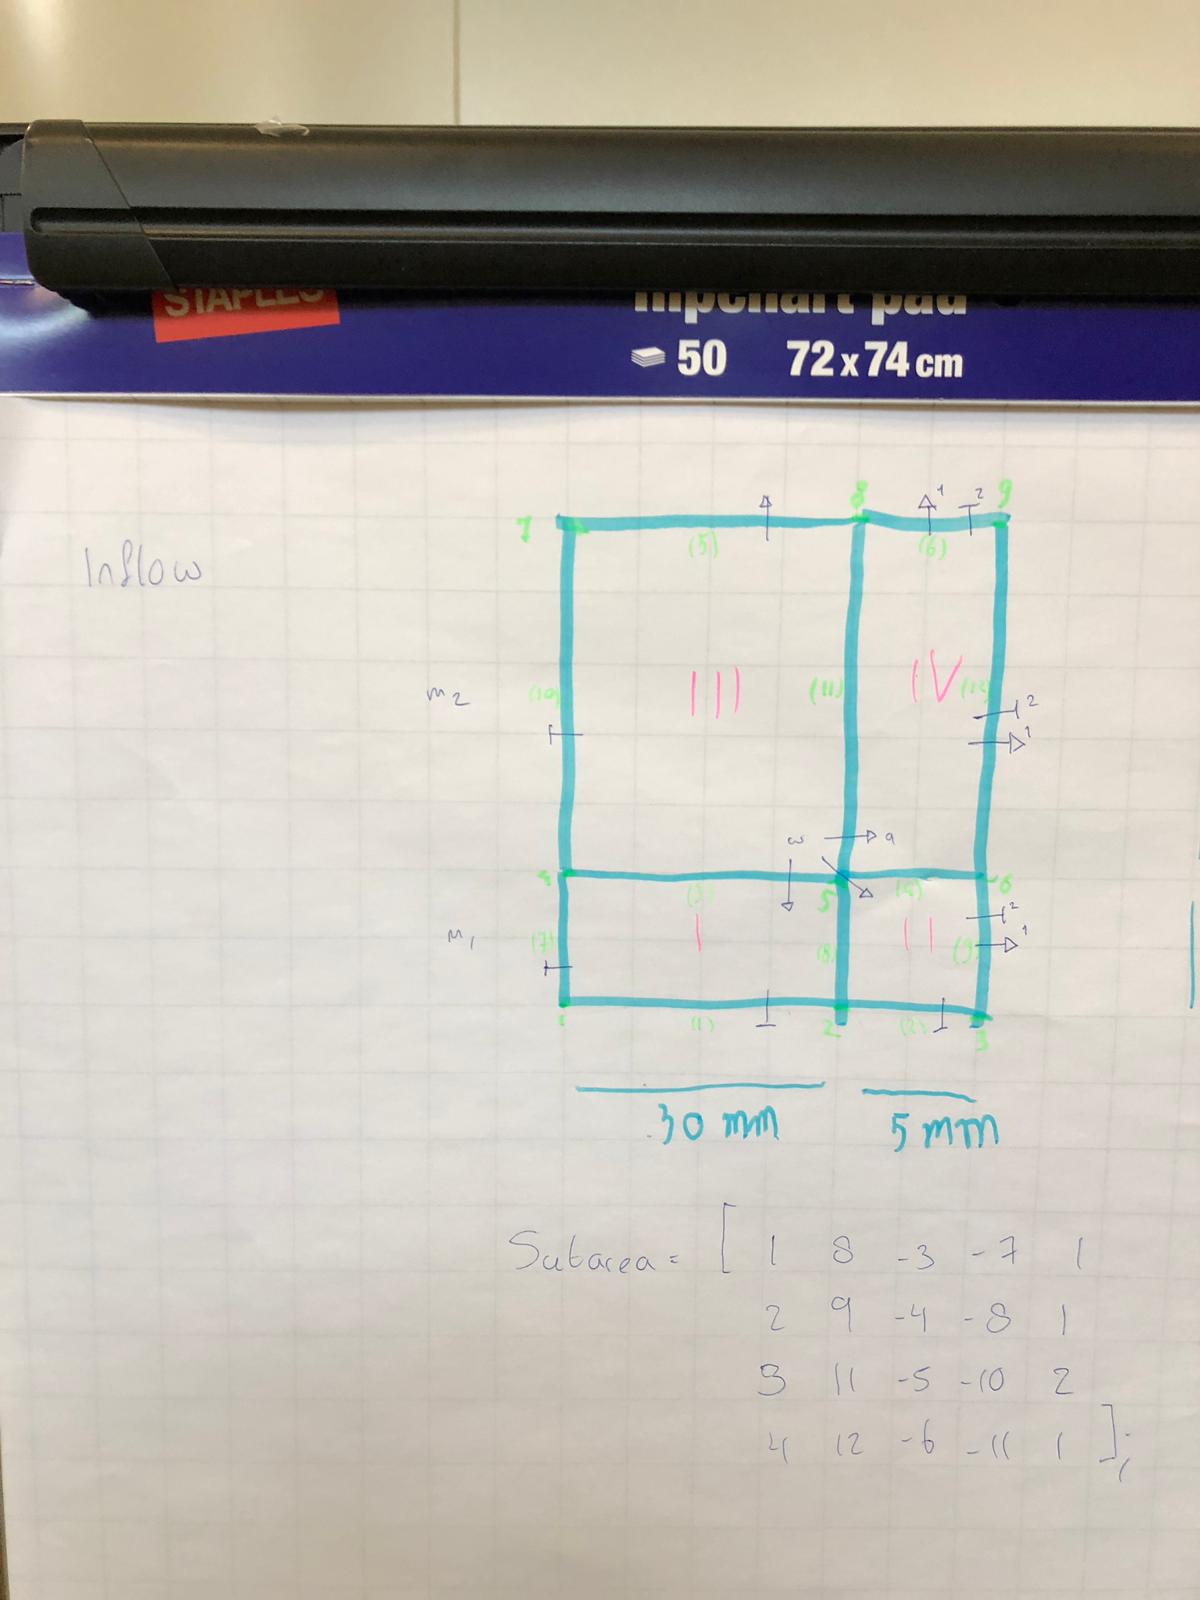 STAPLES
flipchart pad
50 72 x 74 cm
7 8 1 2 9
(5) (6)
Inflow
m2 (10) III (11) IV (12) 2
1
w q
4 (3) 5 (4) 6
m1 (7) I (8) II (9) 2
1
1 (1) 2 (2) 3
30 mm 5 mm
Subarea = [ 1 8 -3 -7 1
2 9 -4 -8 1
3 11 -5 -10 2
4 12 -6 -11 1 ];